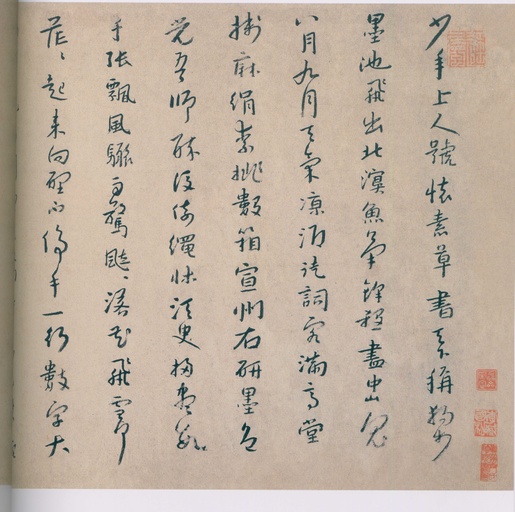 少年上人號懷素草書天下稱獨步
墨池飛出北溟魚筆鋒殺盡中山兔
八月九月天氣凉酒徒詞客滿高堂
牋麻絹素排數箱宣州石研墨色
光吾師醉後倚繩床須臾掃盡數
千張飄風驟雨驚颯ゝ落花飛雪何
茫ゝ起來向壁不停手一行數字大